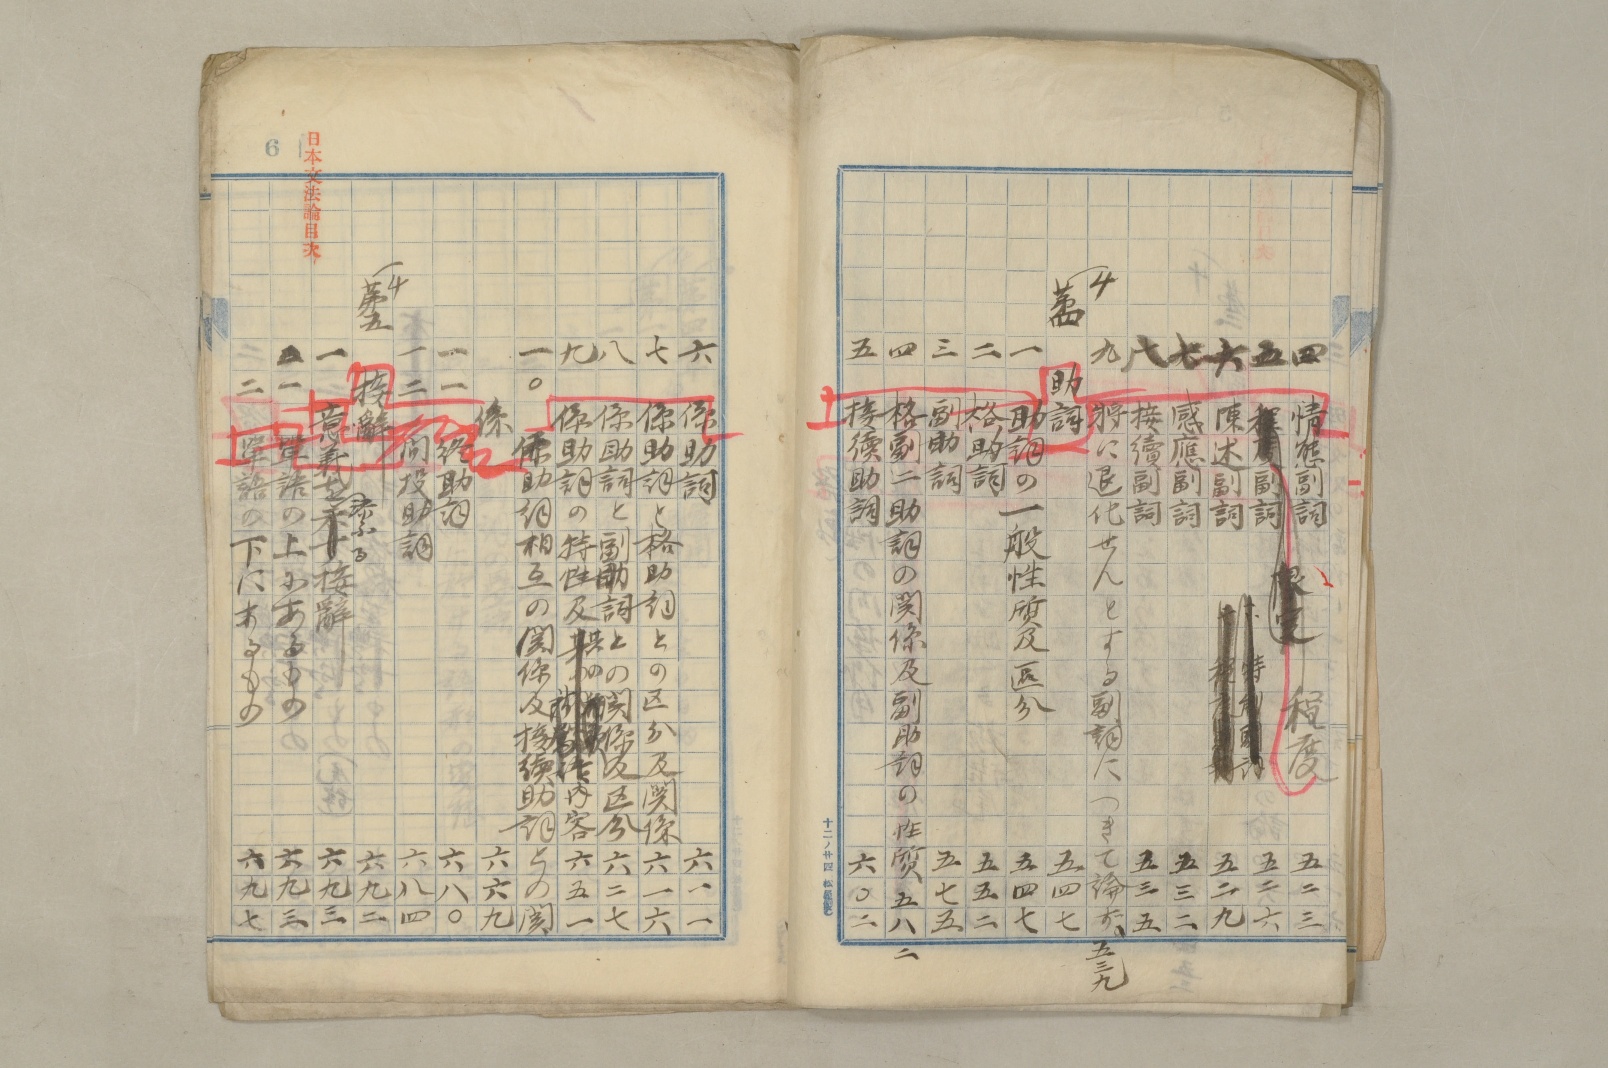 四 情態副詞 五二三
程度
限定
五 程度副詞 五二六
特別副詞
六 陳述副詞 五二九
七 感應副詞 五三二
八 接續副詞 五三五
九 將に退化せんとする副詞につきて論ず、五三九
第四 助詞 五四七
一 助詞の一般性質及區分 五四七
二 格助詞 五五二
三 副助詞 五七五
四 格副二助詞の関係及副助詞の性質 五八二
五 接續助詞 六〇二
十二ノ廿四 松屋製
六 係助詞 六一一
七 係助詞と格助詞との区分及関係 六一六
八 係助詞と副助詞との関係及区分 六二七
九 係助詞の特性及其の内容 六五一
一〇 係助詞相互の関係及接續助詞との関
係 六六九
一一 終助詞 六八〇
一二 間投助詞 六八四
第五 接辭 六九二
添ふる
一 意義を示す接辭 六九三
一 單語の上にあるもの 六九三
二 單語の下にあるもの 六九七
日本文法論目次
6